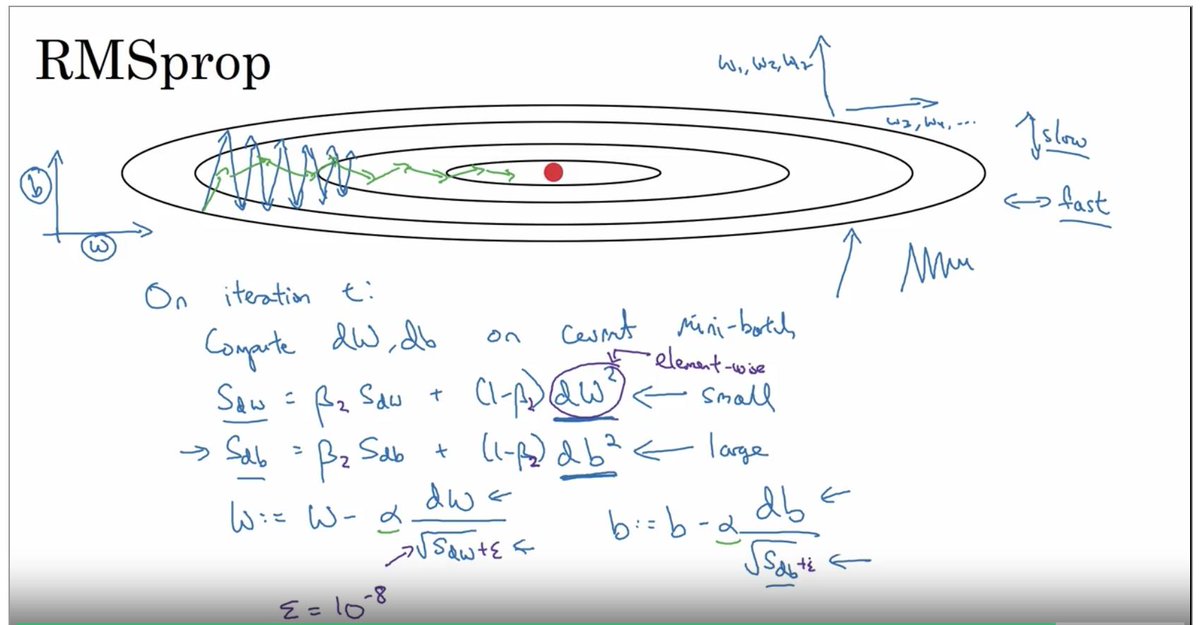 RMSprop
w₁, w₂, w₂
w₃, w₄, ...
slow
fast
b
w
On iteration t:
Compute dW, db on current mini-batch
element-wise
Sdw = β₂ Sdw + (1-β₂) dW² ← small
→ Sdb = β₂ Sdb + (1-β₂) db² ← large
w := w - α dw / √Sdw+ε ← b := b - α db / √Sdb+ε ←
ε = 10⁻⁸